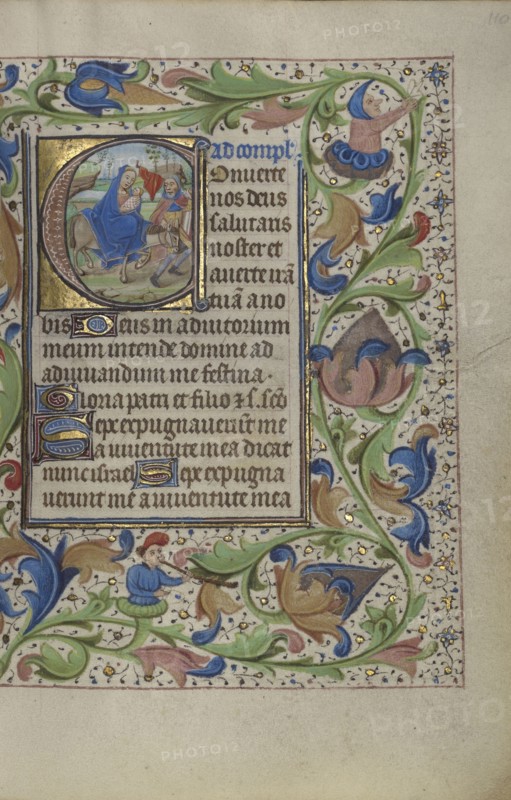 110
ad compl'
Onuerte
nos deus
salutaris
noster et
auerte irā
tuā a no
bis Deus in adiutorium
meum intende domine ad
adiuuandum me festina ·
Gloria patri et filio ⁊ s. sc̄o
Sepe expugnauerūt me
a iuuentute mea dicat
nunc israel Sepe expugna
uerunt me a iuuentute mea
PHOTO12